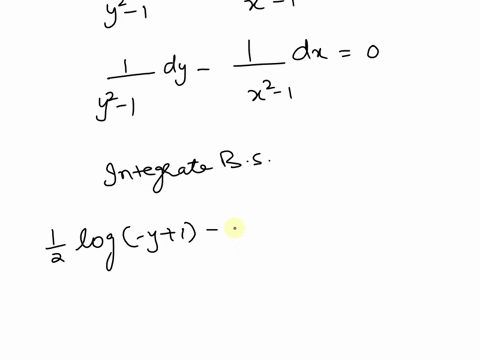 y²-1 x²-1
1/(y²-1) dy - 1/(x²-1) dx = 0
Integrate B.s.
1/2 log(-y+1) -